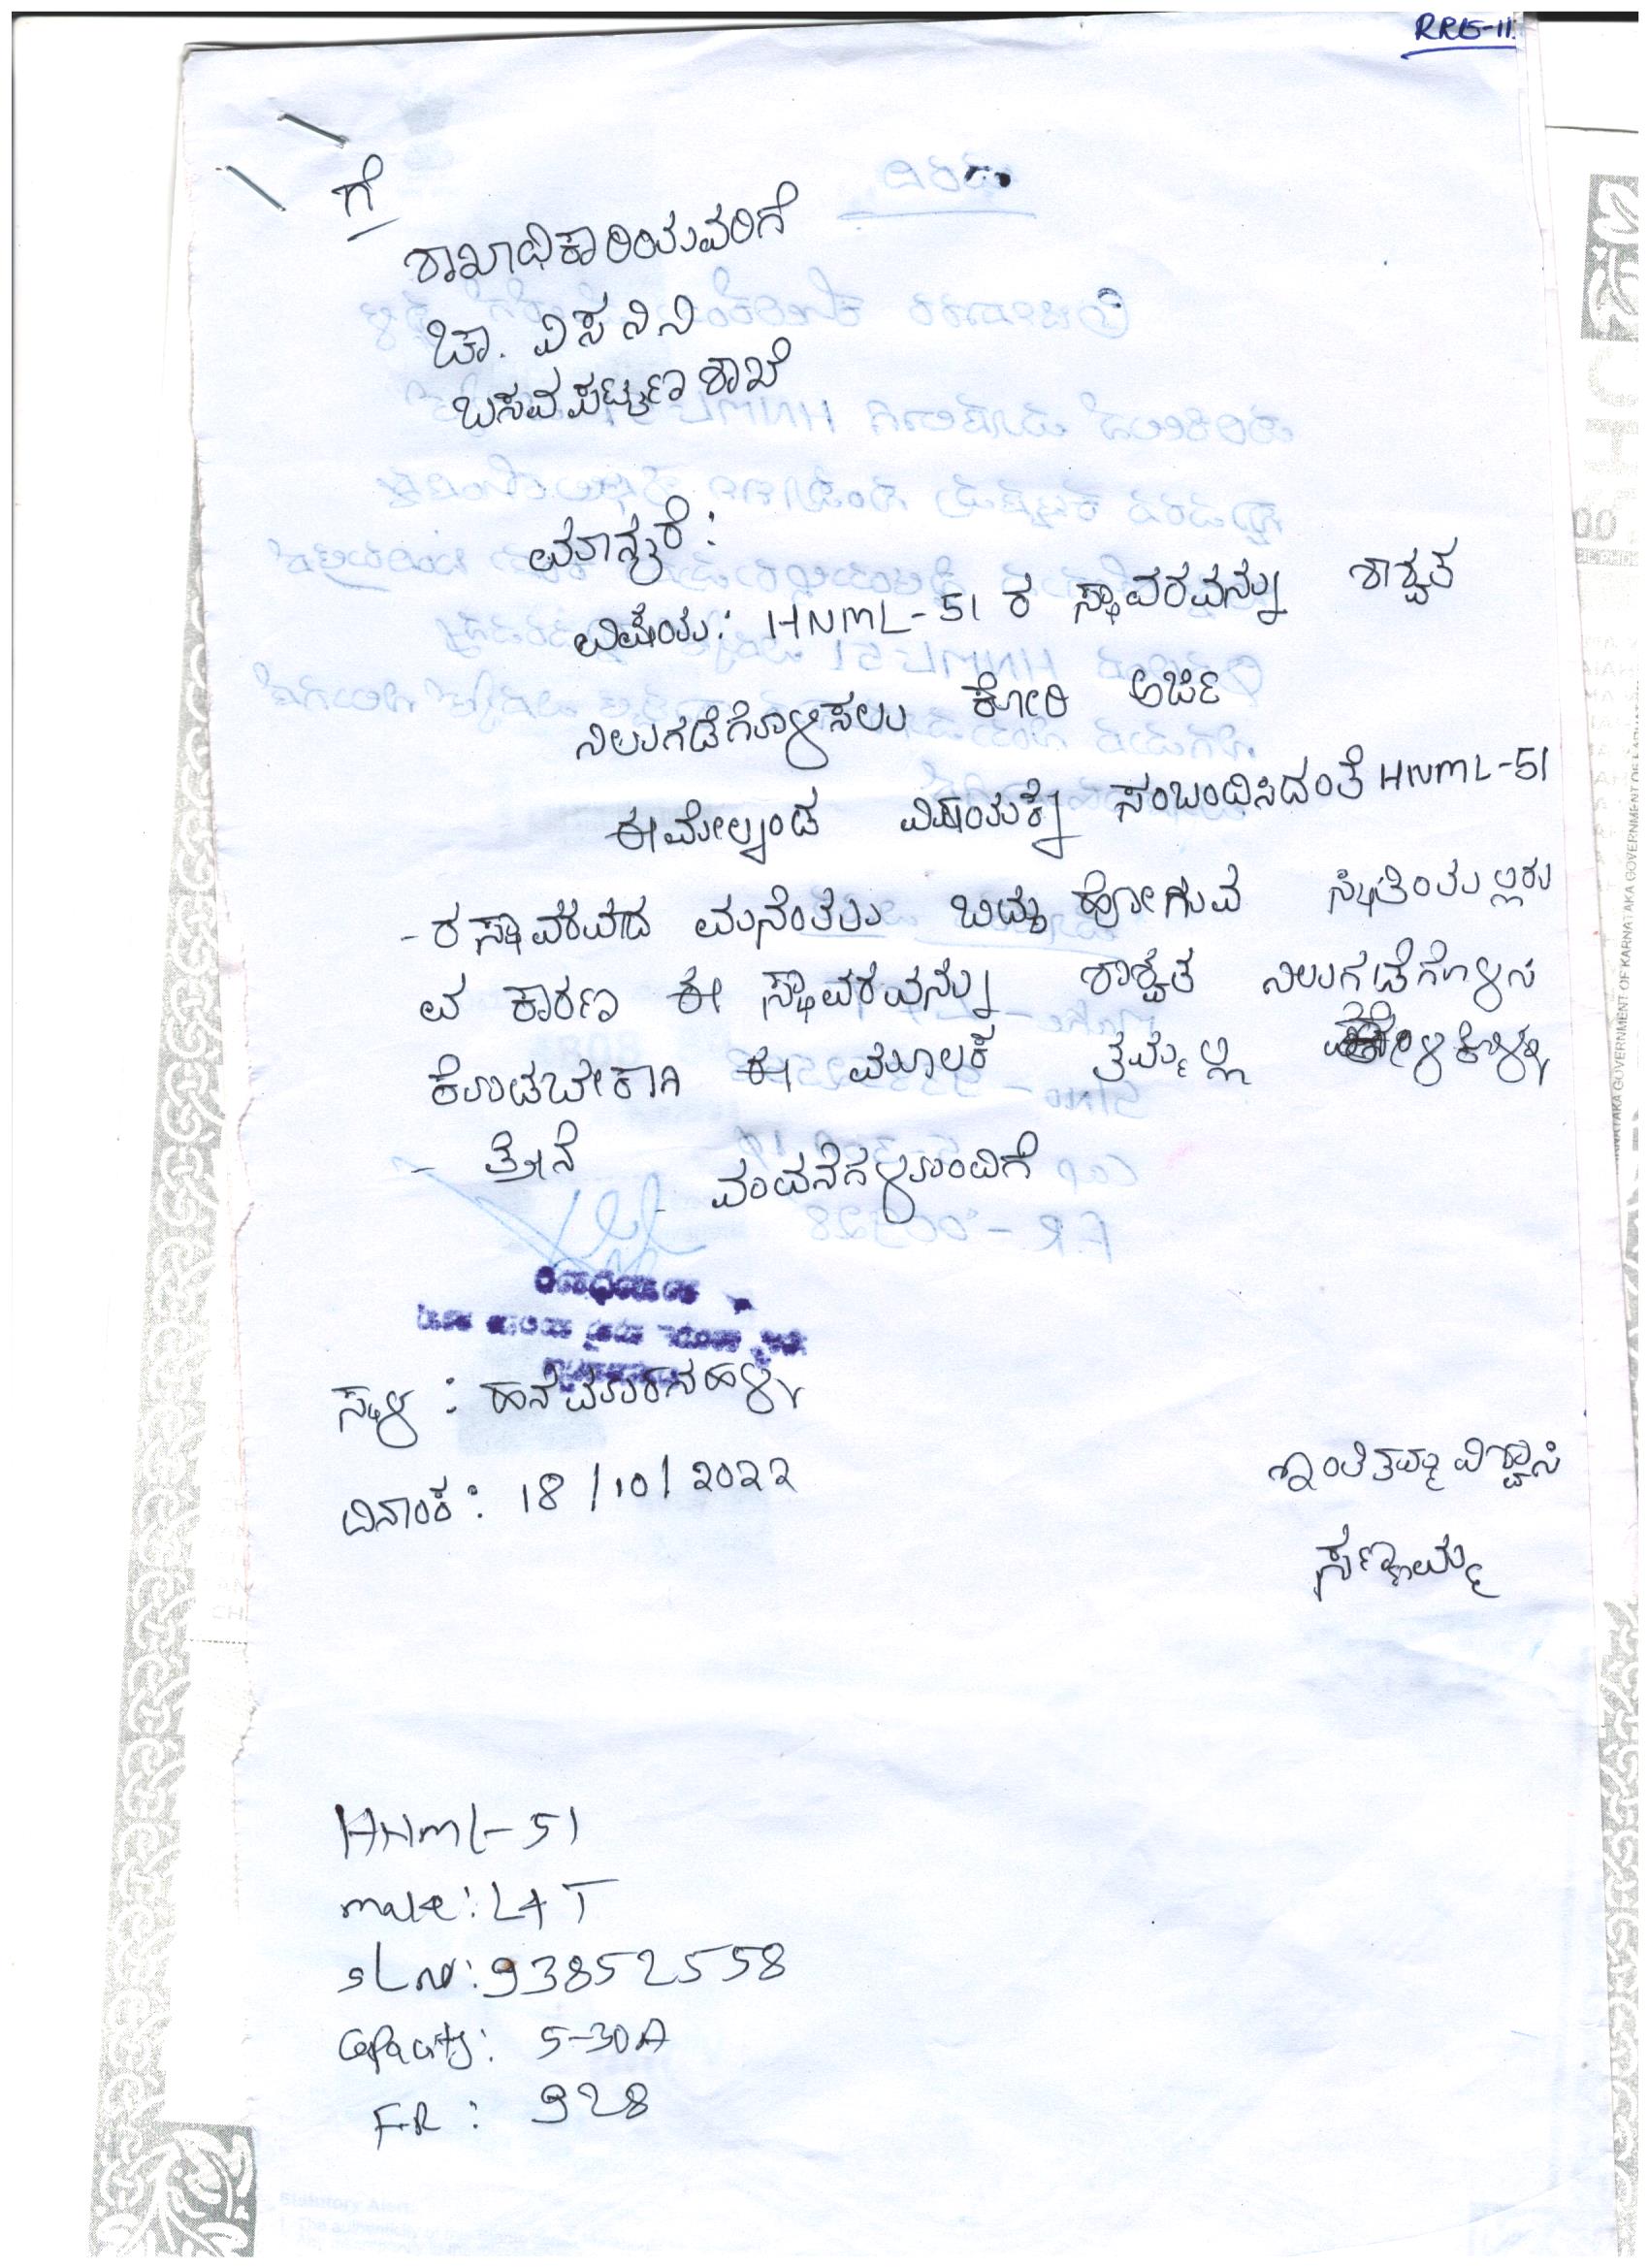 RRE-11
ಗೆ
ಶಾಖಾಧಿಕಾರಿಯವರಿಗೆ
ಚಾ. ವಿಸನಿನಿ
ಬಸವಪಟ್ಟಣ ಶಾಖೆ
ಮಾನ್ಯರೆ:
ವಿಷೆಯ: HNML-51 ರ ಸ್ಥಾವರವನ್ನು ಶಾಶ್ವತ
ನಿಲುಗಡೆಗೊಳಿಸಲು ಕೋರಿ ಅರ್ಜಿ
ಈಮೇಲ್ಕಂಡ ವಿಷಯಕ್ಕೆ ಸಂಬಂದಿಸಿದಂತೆ HNML-51
-ರ ಸ್ಥಾವರವಾದ ಮನೆಂತಲು ಬಿದ್ದು ಹೋಗುವ ಸ್ಥಿತಿಯಲ್ಲಿರು
ವ ಕಾರಣ ಈ ಸ್ಥಾವರವನ್ನು ಶಾಶ್ವತ ನಿಲುಗಡೆಗೊಳಿಸಿ
ಕೊಡಬೇಕಾಗಿ ಈ ಮೂಲಕ ತಮ್ಮಲ್ಲಿ ಕೇಳಿಕೊಳ್ಳು
- ತ್ತೇನೆ
- ವಂದನೆಗಳೊಂದಿಗೆ
ಸ್ಥಳ : ಹನೆಮಾರನಹಳ್ಳಿ
ದಿನಾಂಕ: 18/10/2022
ಇಂತಿ ತಮ್ಮ ವಿಶ್ವಾಸಿ
ಸಣ್ಣಮ್ಮ
HNML-51
make: L&T
SLNo: 93852558
Capacity: 5-30A
F.R : 928